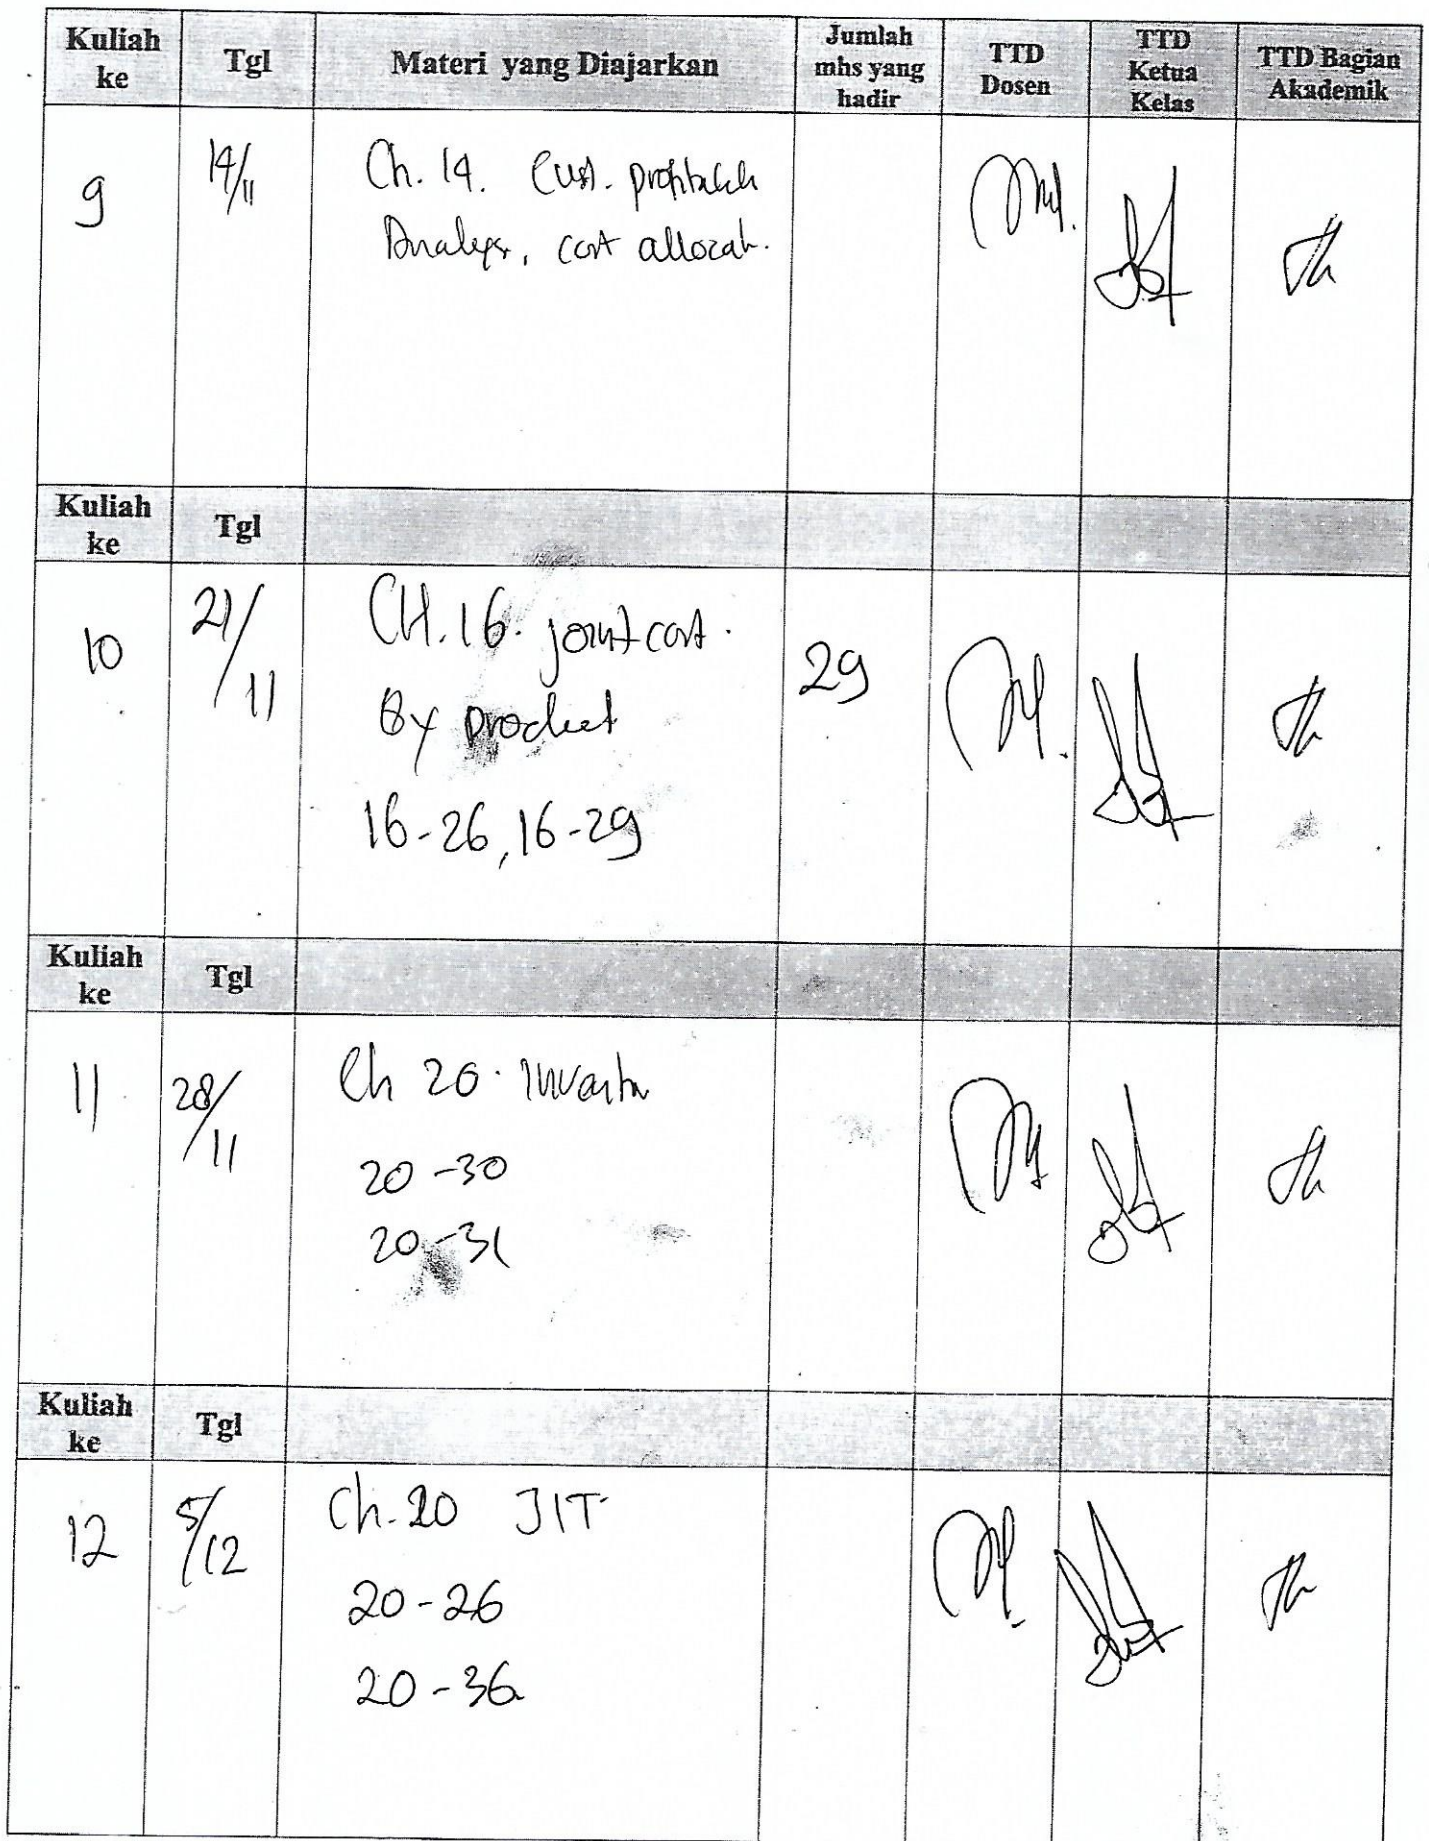 Kuliah ke Tgl Materi yang Diajarkan Jumlah mhs yang hadir TTD Dosen TTD Ketua Kelas TTD Bagian Akademik
9 14/11 Ch. 14. Cust.
cost
Kuliah ke Tgl
10 21/11 CH. 16. joint cost. 29
By product
16-26, 16-29
Kuliah ke Tgl
11 28/11 Ch 20.
20-30
20-31
Kuliah ke Tgl
12 5/12 Ch. 20 JIT
20-26
20-36